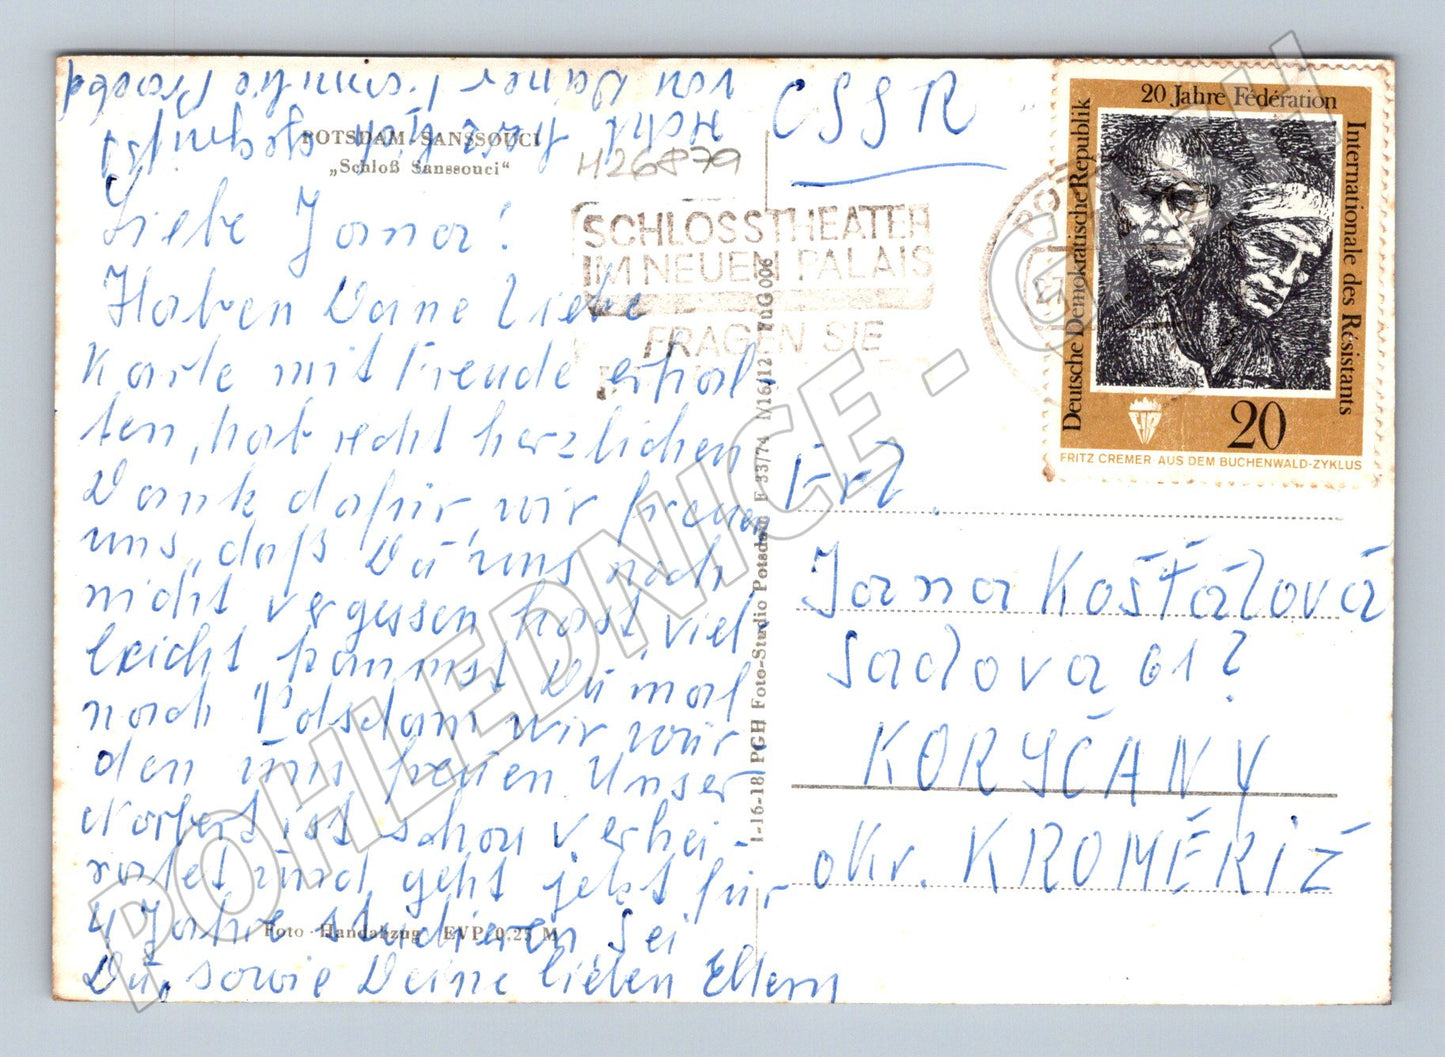 POTSDAM-SANSSOUCI
„Schloß Sanssouci“
H26879
Liebe Jana!
Haben Deine Liebe
Karte mit Freude erhal-
ten, hab recht herzlichen
Dank dafür wir freuen
uns, daß Du uns noch
nicht vergessen hast, viel-
leicht kommst Du mal
nach Potsdam wir wür
den uns freuen Unser
Norbert ist schon verhei-
ratet und geht jetzt für
4 Jahre studieren Sei
Du, sowie Deine lieben Eltern
recht herzlich gegrüßt
von Deiner Familie
Foto-Handabzug EVP 0,25 M
1-16-18 PGH Foto-Studio Potsdam E 33/74 N16/12 FuG 006
SCHLOSSTHEATER
IM NEUEN PALAIS
FRAGEN SIE
CSSR
20 Jahre Fédération
Internationale des Résistants
Deutsche Demokratische Republik
FIR
20
FRITZ CREMER AUS DEM BUCHENWALD-ZYKLUS
Frl.
Jana Košťálová
Sadova 612
KORYČANY
okr. KROMĚŘIŽ
POHLEDNICE - G